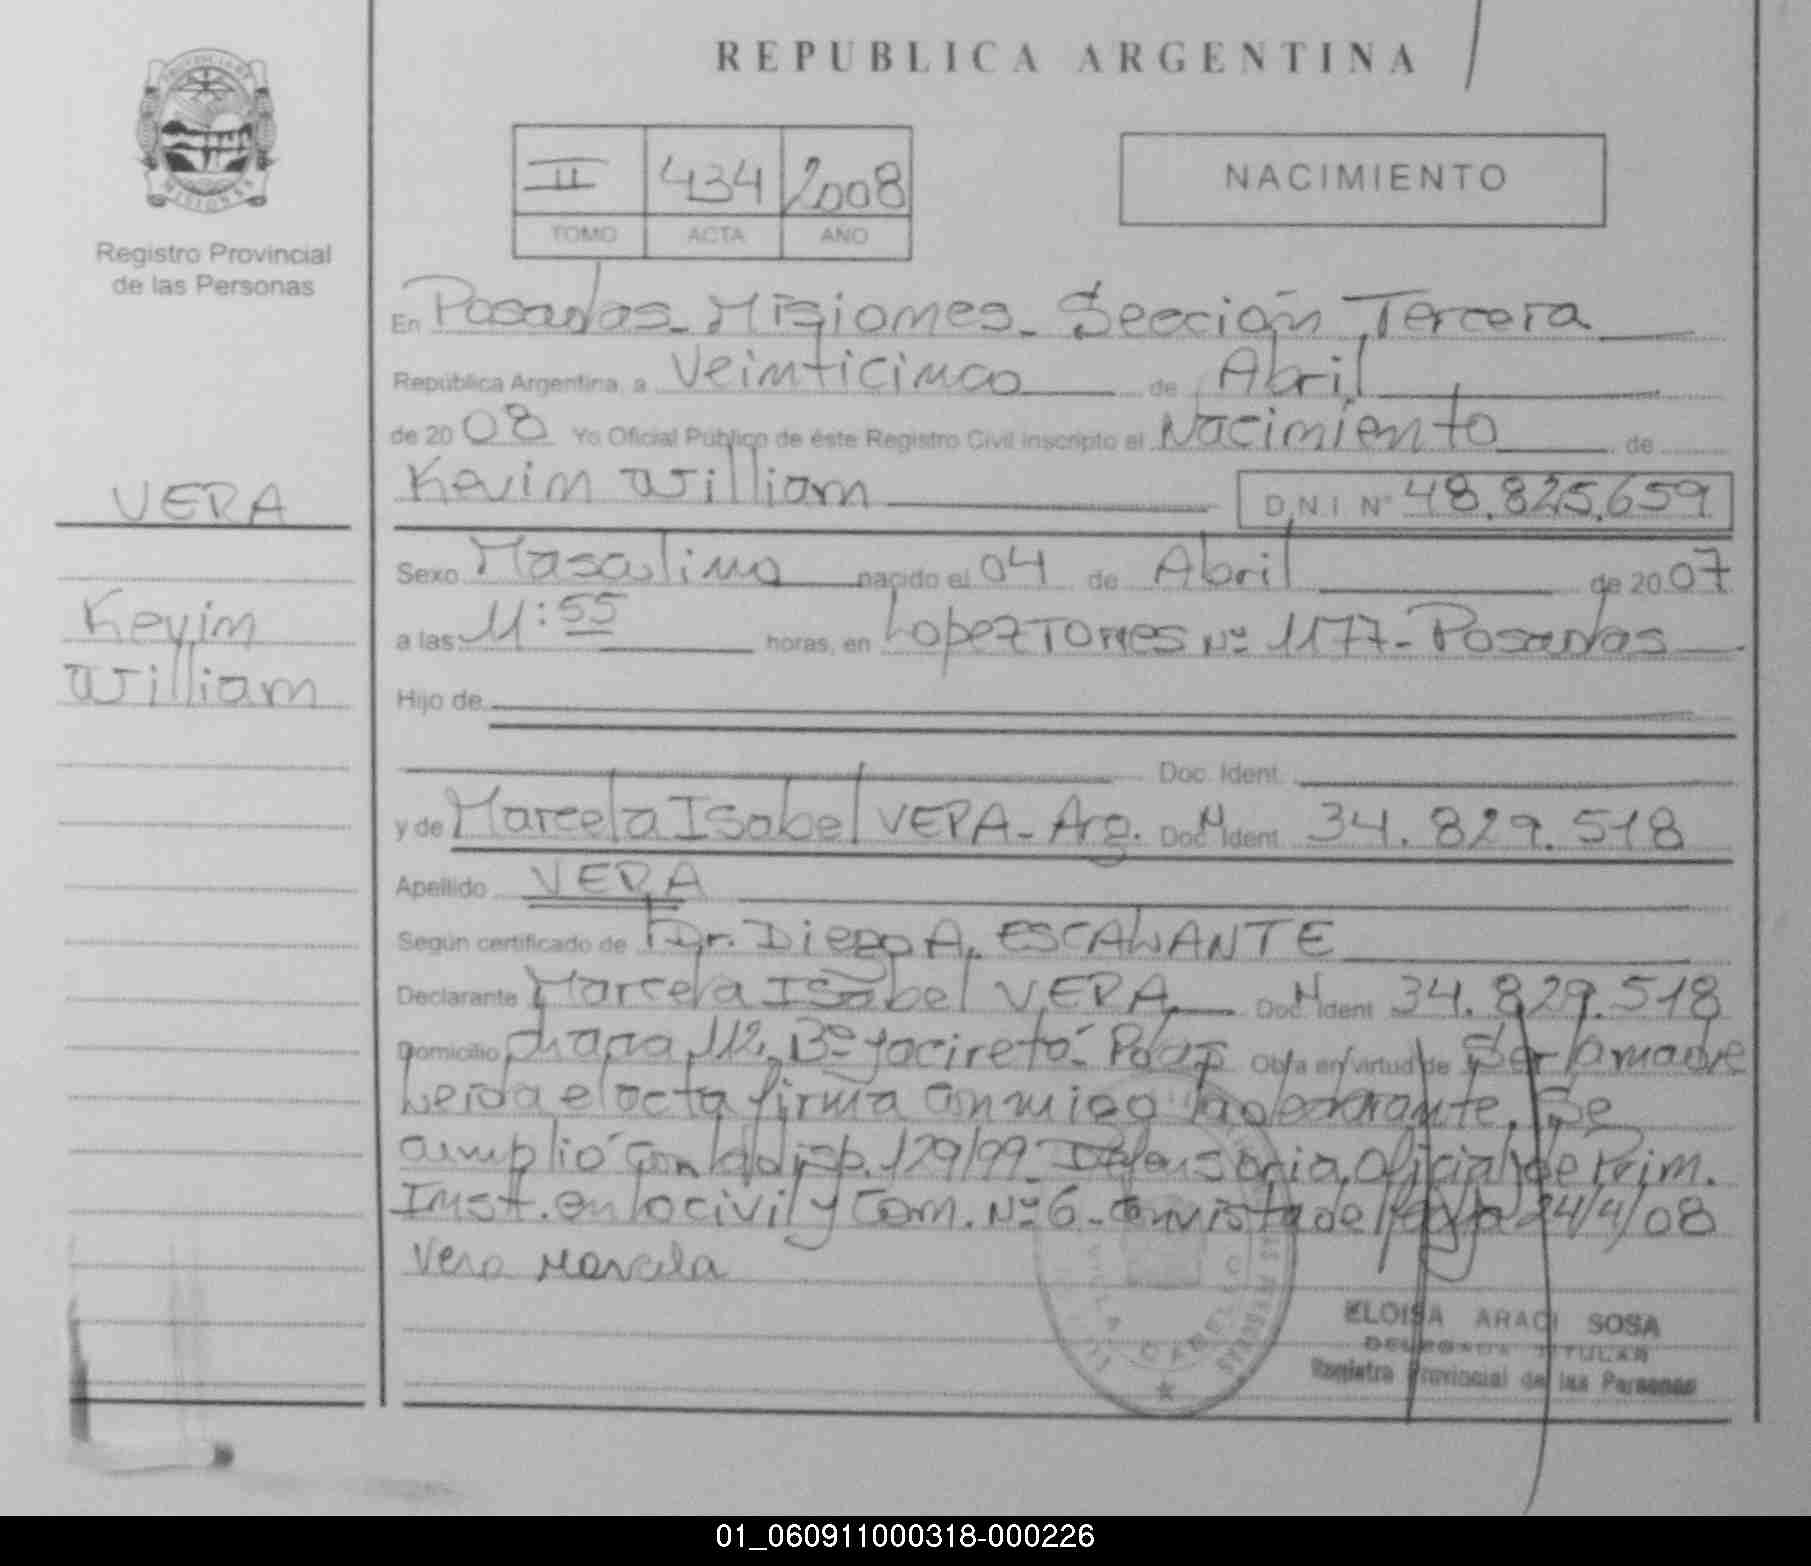 REPUBLICA ARGENTINA
PROVINCIA DE MISIONES
Registro Provincial
de las Personas
II 434 2008
TOMO ACTA AÑO
NACIMIENTO
En Posadas - Misiones - Sección Tercera
República Argentina, a Veinticinco de Abril
de 20 08 Yo Oficial Público de éste Registro Civil inscripto el Nacimiento de
Kevin William D.N.I Nº 48.825.659
VERA
Kevin
William
Sexo Masculino nacido el 04 de Abril de 20 07
a las 11:55 horas, en Lopez Torres Nº 1177 - Posadas
Hijo de
Doc. Ident.
y de Marcela Isabel VERA - Arg. Doc. N Ident. 34.829.518
Apellido VERA
Según certificado de Dr. Diego A. ESCALANTE
Declarante Marcela Isabel VERA Doc. N Ident 34.829.518
Domicilio chacra 112, Bº Yacireta - Pdas Obra en virtud de Ser la madre
Leida el acta firma conmigo la declarante. Se
amplió con la disp. 129/99 - Defensoria Oficial de Prim.
Inst. en lo civil y Com. Nº 6 - 24/4/08
Vera Marcela
ELOISA ARACI SOSA
DELEGADA TITULAR
Registro Provincial de las Personas
01_060911000318-000226